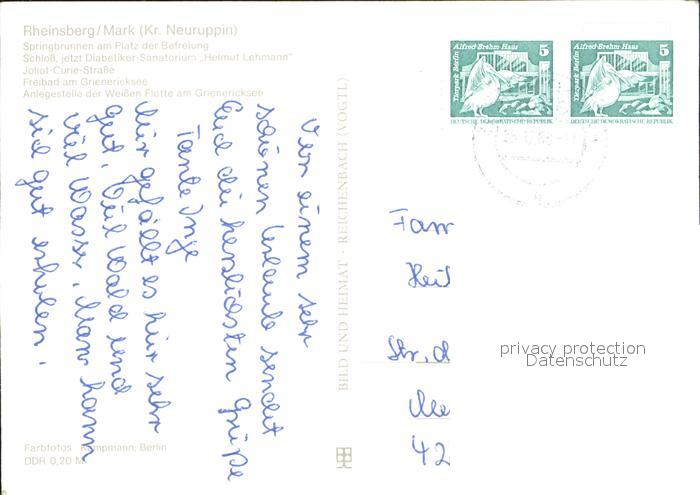 Rheinsberg/Mark (Kr. Neuruppin)
Springbrunnen am Platz der Befreiung
Schloß, jetzt Diabetiker-Sanatorium „Helmut Lehmann"
Joliot-Curie-Straße
Freibad am Grienericksee
Anlegestelle der Weißen Flotte am Grienericksee
Von einem sehr
schönen Urlaub sendet
Euch die herzlichsten Grüße
Tante Inge
Mir gefällt es hier sehr
gut. Viel Wald und
viel Wasser. Man kann
sich gut erholen.
Farbfotos Kampmann, Berlin
DDR 0,20 M
BILD UND HEIMAT · REICHENBACH (VOGTL)
Tierpark Berlin
Alfred-Brehm-Haus
5
DEUTSCHE DEMOKRATISCHE REPUBLIK
Tierpark Berlin
Alfred-Brehm-Haus
5
DEUTSCHE DEMOKRATISCHE REPUBLIK
Fam
Str. d
42
privacy protection
Datenschutz